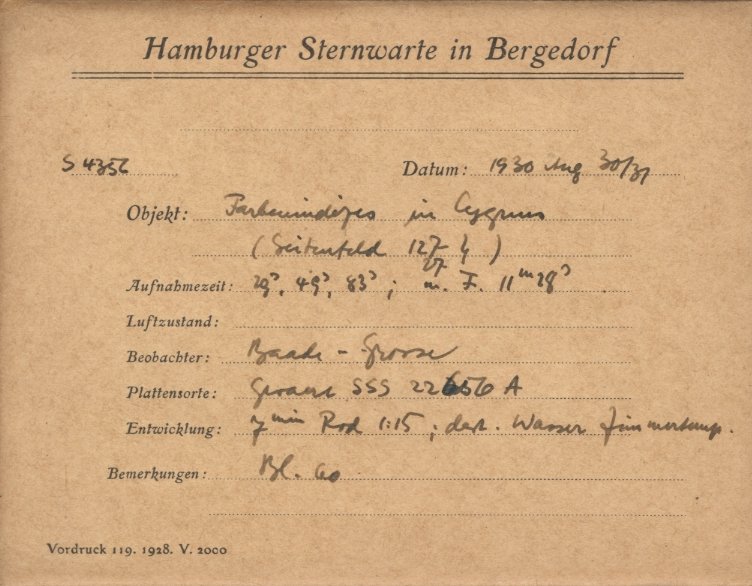 Hamburger Sternwarte in Bergedorf
S 4356
Datum: 1930 Aug 30/31
Objekt: Farbenindizes in Cygnus
(Seitenfeld 127
Aufnahmezeit: 29ˢ, 49ˢ, 83ˢ; m. F. 11ᵐ28ˢ
Luftzustand:
Beobachter: Baade - Grosse
Plattensorte: Gevaert SSS 22656 A
Entwicklung: 7 min Rod 1:15; dest. Wasser Zimmertemp.
Bemerkungen: Bl. 60
Vordruck 119. 1928. V. 2000